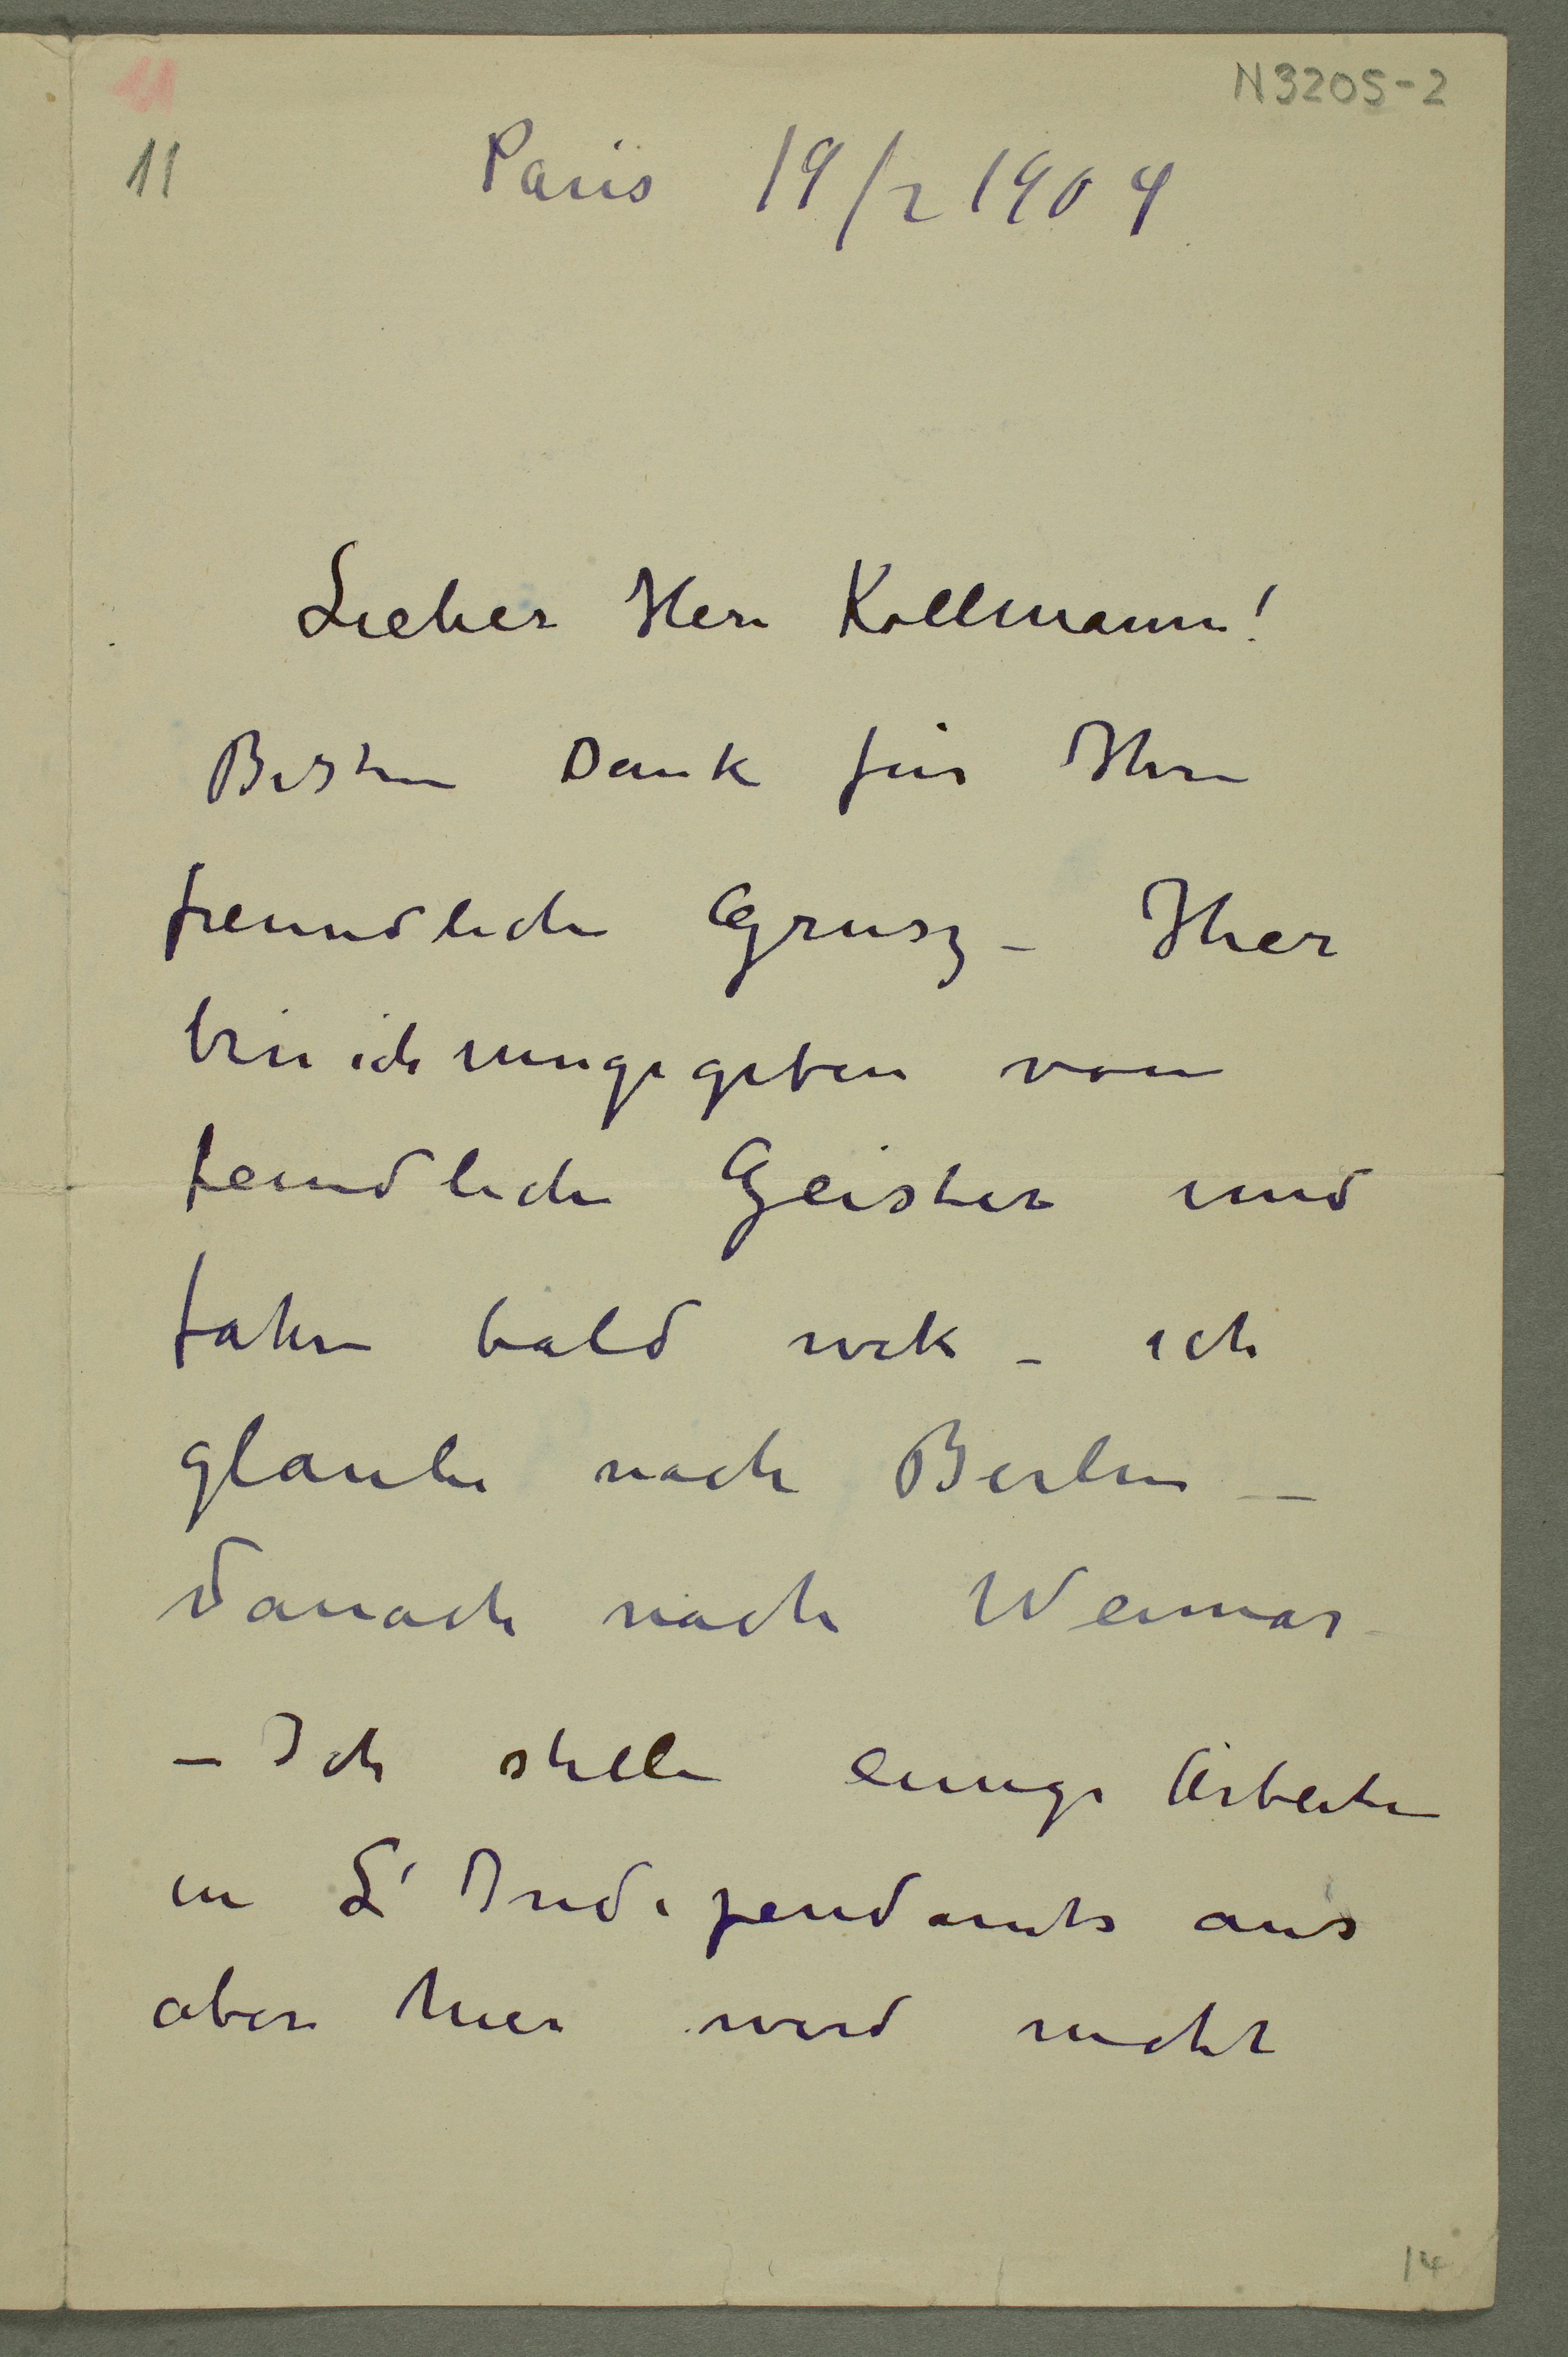 N3205-2
11
11
Paris 19/2 1904
Lieber Herr Kollmann!
Besten Dank für Ihren
freundlichen Grusz – Hier
bin ich umgegeben von
feindlichen Geister und
fahre bald wek – ich
glaube nach Berlin –
danach nach Weimar –
– Ich stelle einige Arbeiten
in L'Independants aus
aber hier wird nicht
14